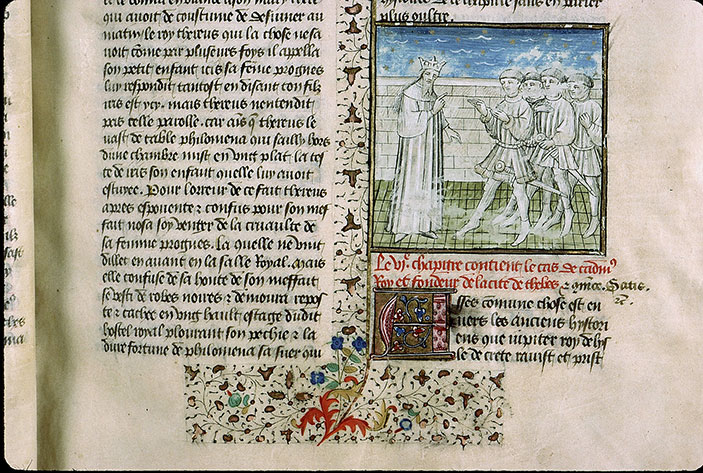 qui auoit de coustume de desiuner au
matin. le roy thereus qui la chose ne sa
uoit come par plusieurs foys il appella
son petit enfant itis sa feme prognes
luy respondit tantost en disant ton filz
itis est ycy. mais thereus nentendit
pas telle parolle. car ains q thereus le
uast de table philomena qui sailly hors
dune chambre mist en vng plat la tes
te de itis son enfant quelle luy auoit
Pour lorreur de ce fait thereus
apres espouente & confus pour son mef
fait nosa soy venger de la cruaulte de
sa femme prognes. la quelle ne
en auant en la salle Royal. mais
elle confuse de sa honte & de son meffait
se vesti de robes noires & demoura repos
te & cachee en vng hault estage dudit
hostel royal plourant son pechie & la
dure fortune de philomena sa suer qui
plus oultre.
Le vi. chapitre contient le cas de cadm
Roy et fondeur de la cite de thebes &
Asses comune chose est en
uers les anciens hystori
ens que iupiter roy de
le de crete rauist et prist